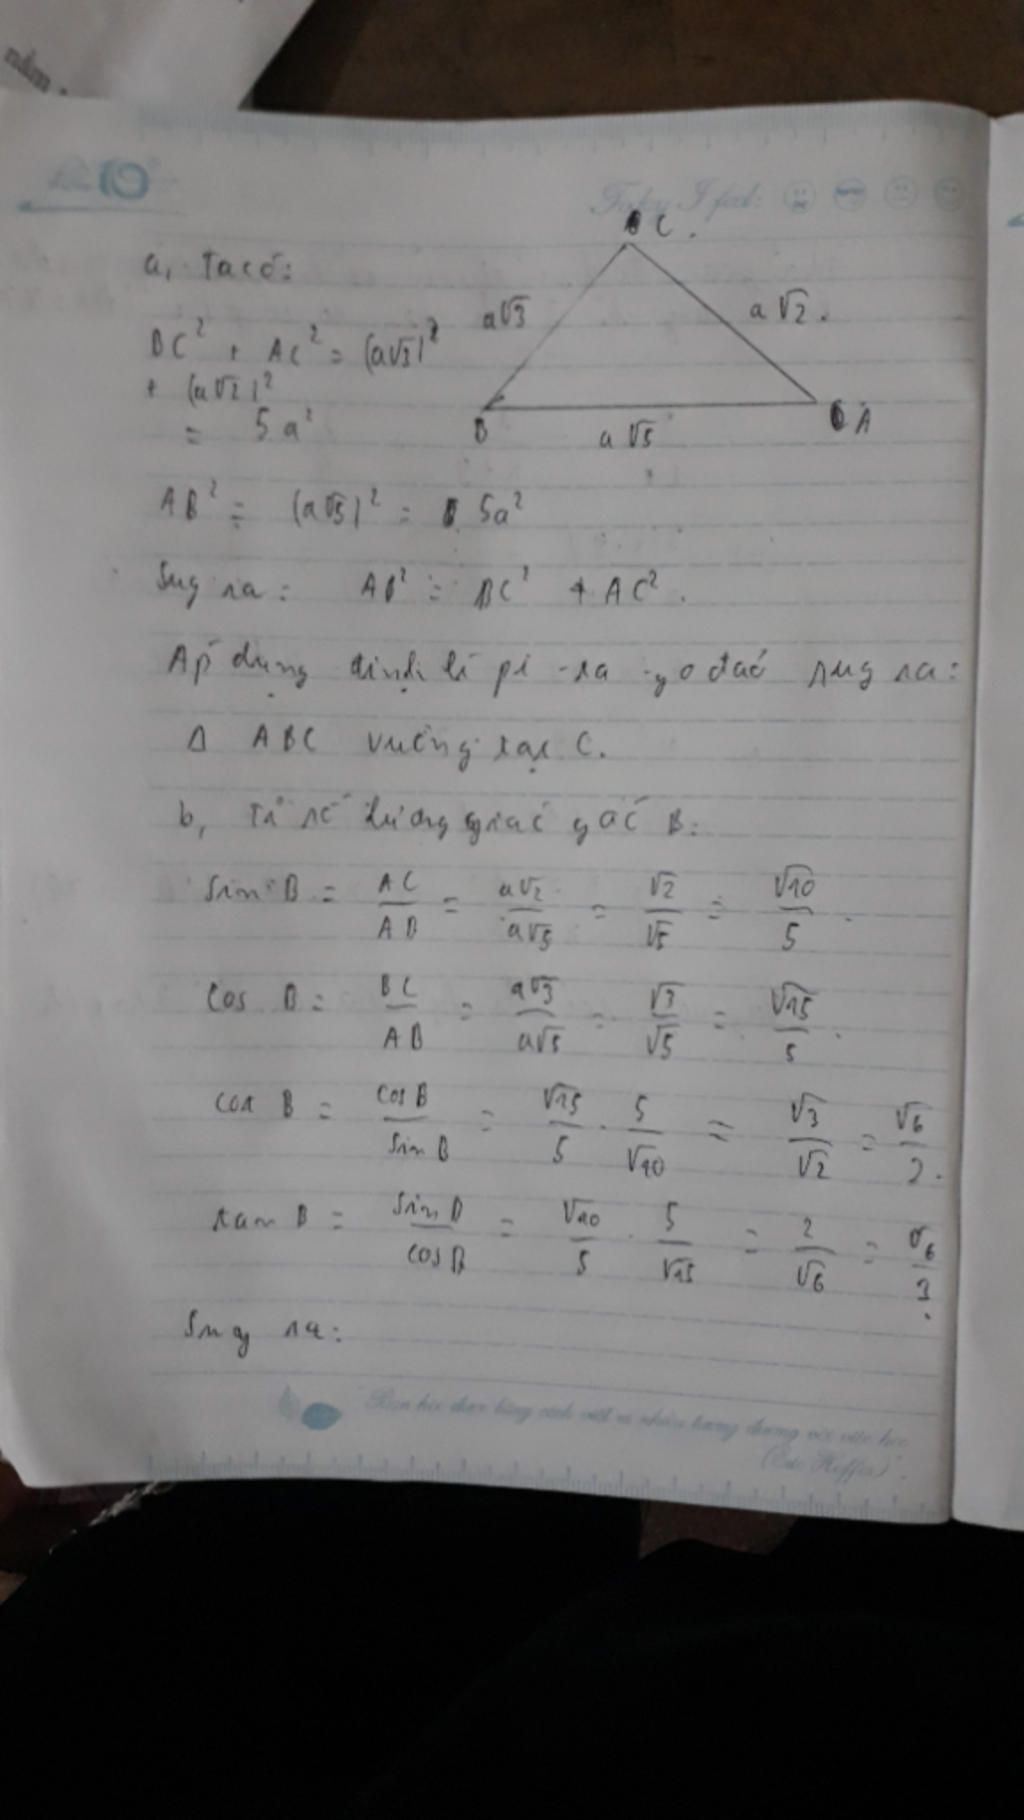 Today I feel:
C.
a, Ta có:
a√3
a√2.
BC² + AC² = (a√3)²
+ (a√2)²
= 5a²
B
a√5
A
AB² = (a√5)² = 5a²
Suy ra: AB² = BC² + AC².
Áp dụng định lí pi-ta-go đảo suy ra:
Δ ABC vuông tại C.
b, Tỉ số lượng giác góc B:
Sin B = AC/AB = a√2/a√5 = √2/√5 = √10/5.
Cos B = BC/AB = a√3/a√5 = √3/√5 = √15/5.
cot B = cosB/sinB = √15/5 . 5/√10 = √3/√2 = √6/2.
tan B = sinB/cosB = √10/5 . 5/√15 = 2/√6 = √6/3.
Suy ra: